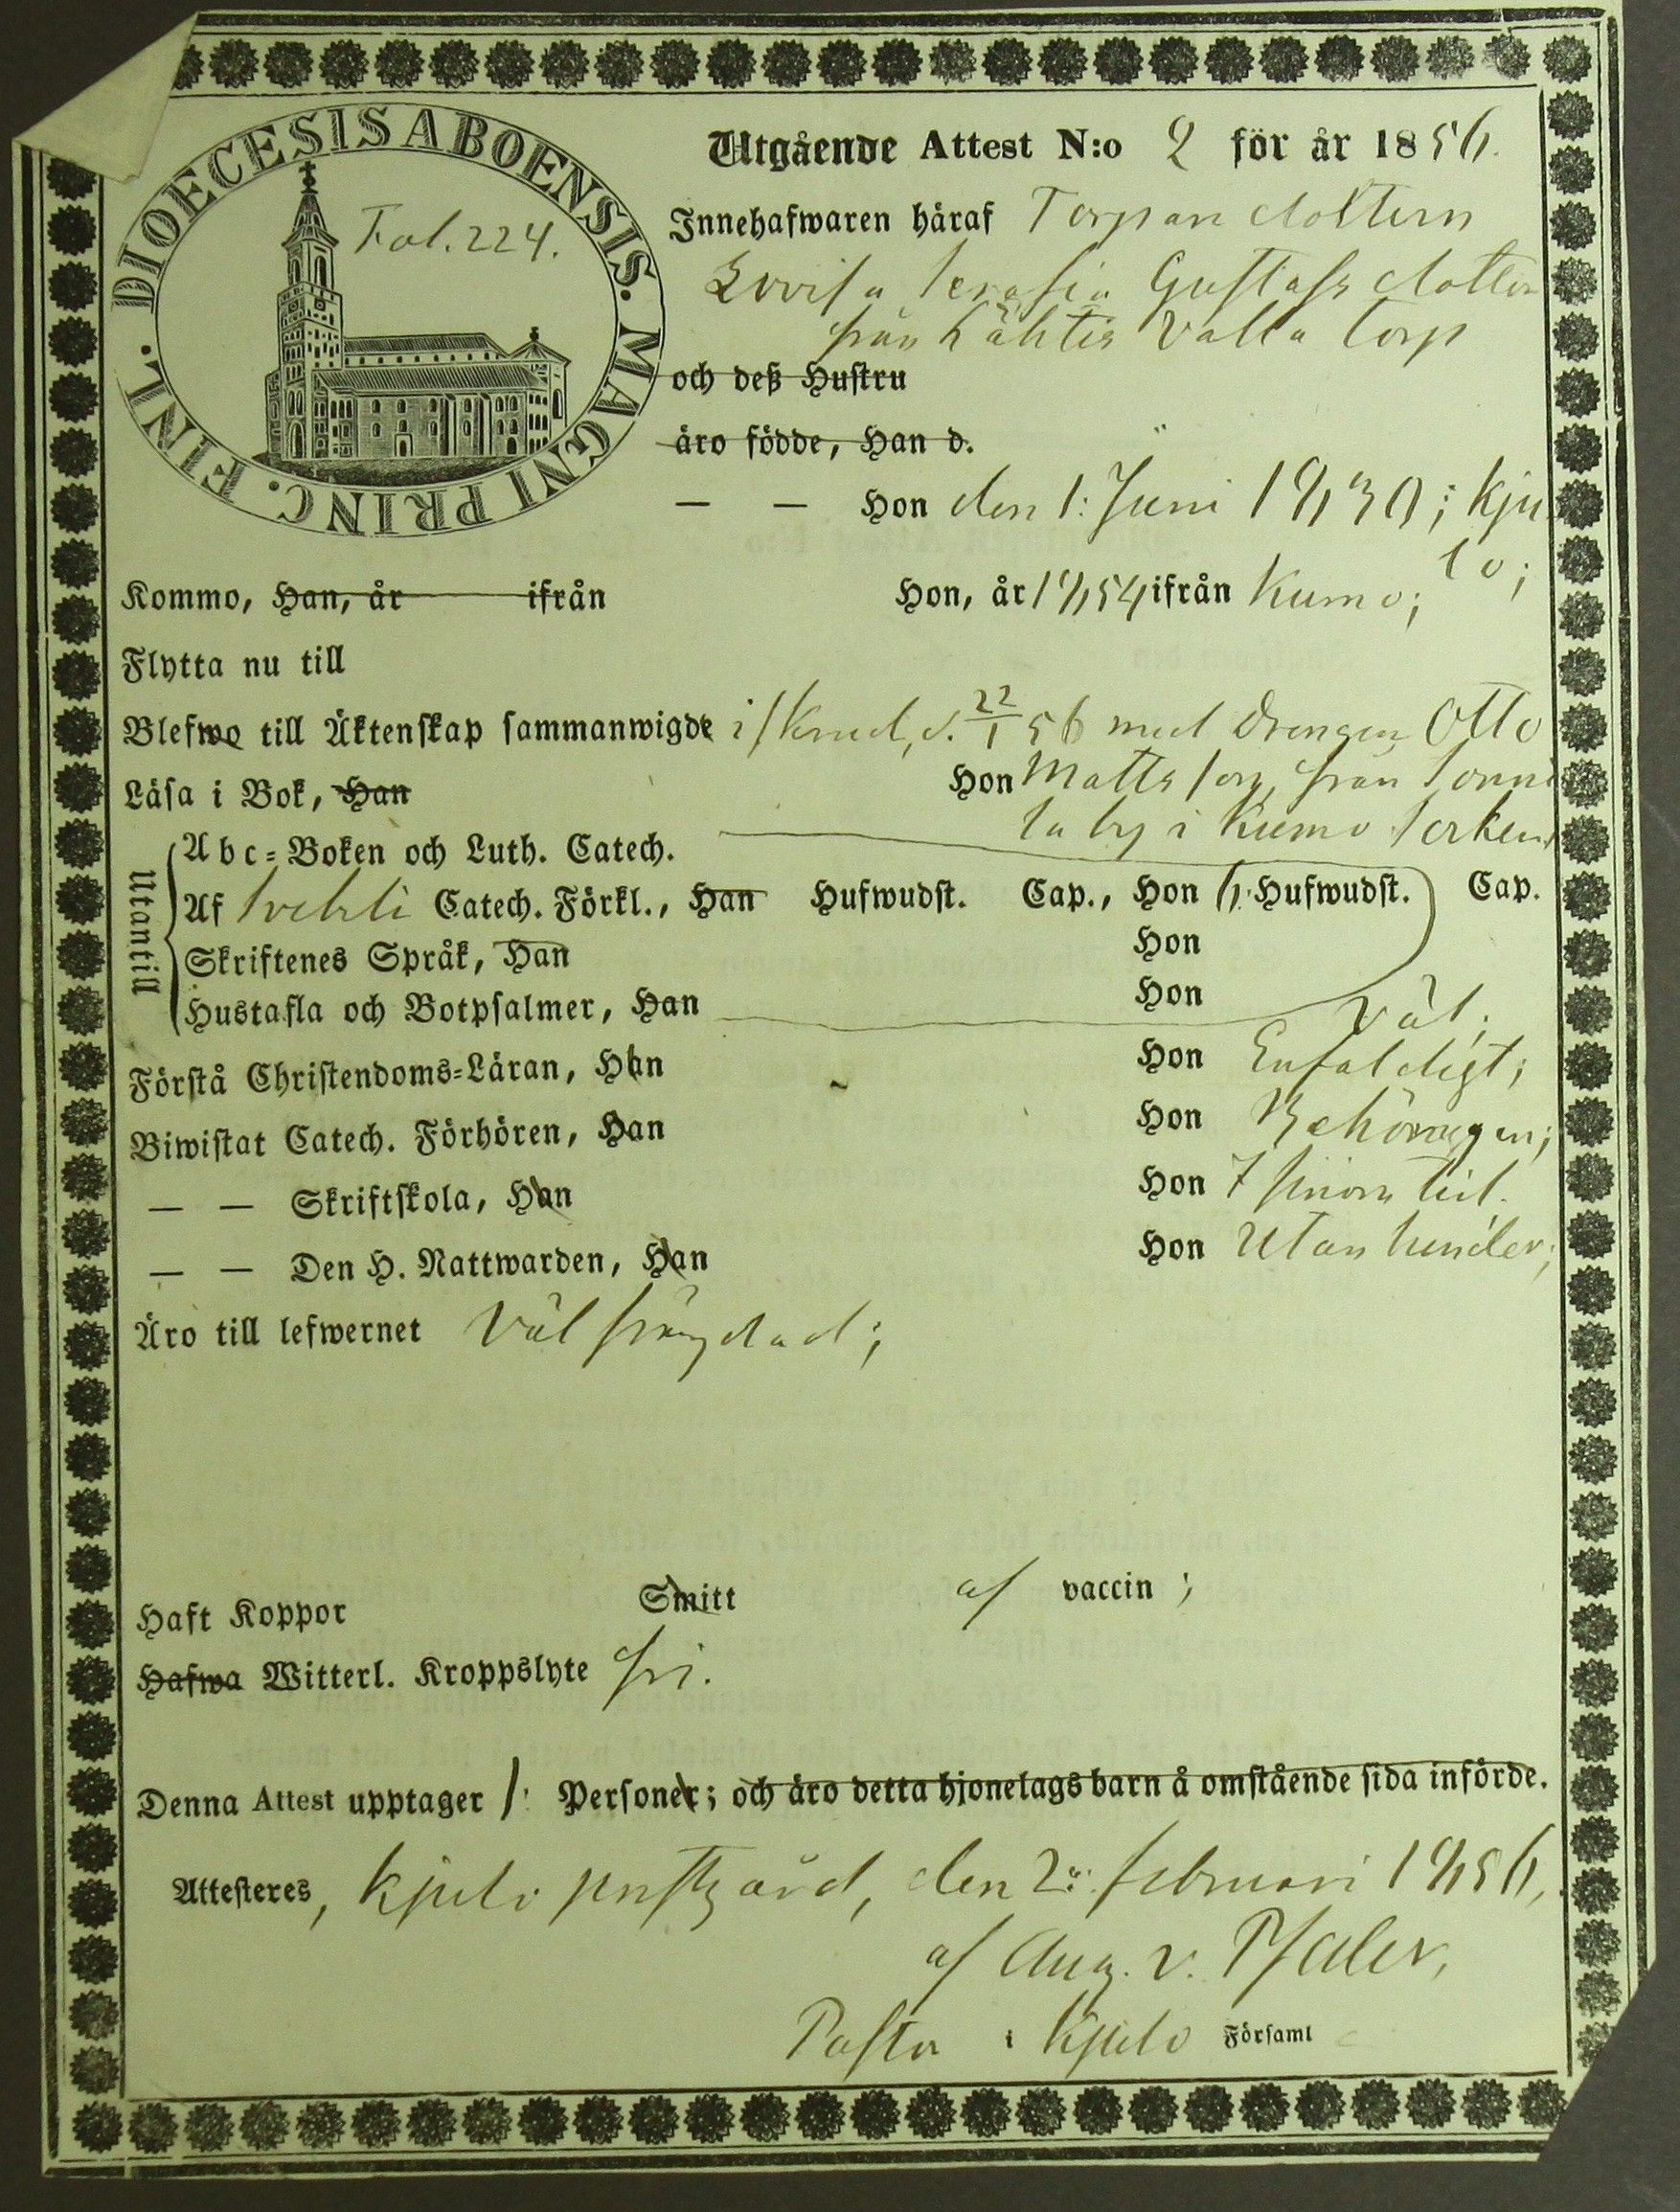 DIOECESIS ABOENSIS. MAGNI PRINC. FINL.
Fol. 224.
Utgående Attest N:o 2 för år 1856.
Innehafwaren häraf Torpare dottern
Lovisa Serafia Gustafs dotter
från Lähteis Valla torp
och deß Hustru
äro födde, Han d.
— — Hon den 1: Juni 1839; Kju
lo;
Kommo, Han, år ifrån Hon, år 1854 ifrån Kumo;
Flytta nu till
Blefwo till Äktenskap sammanwigde d. 22/1 56 med Drengen Otto
Läsa i Bok, Han Hon Matts son, från
la by i Kumo Socken
Utantill
Abc-Boken och Luth. Catech.
Af Svebeli Catech. Förkl., Han Hufwudst. Cap., Hon 6. Hufwudst. Cap.
Skriftenes Språk, Han Hon
Hustafla och Botpsalmer, Han Hon Väl;
Förstå Christendoms-Läran, Han Hon Enfaldigt;
Biwistat Catech. Förhören, Han Hon
— — Skriftskola, Han Hon I sinom tid.
— — Den H. Nattwarden, Han Hon Utan hinder;
Äro till lefwernet Väl frägdad;
Haft Koppor Smitt af vaccin;
Hafwa Witterl. Kroppslyte fri.
Denna Attest upptager 1: Personer; och äro detta hjonelags barn å omstående sida införde.
Attesteres, Kjulo prestgård, den 2: februari 1856,
af Aug. v. Pfaler,
Pastor i Kjulo Församl